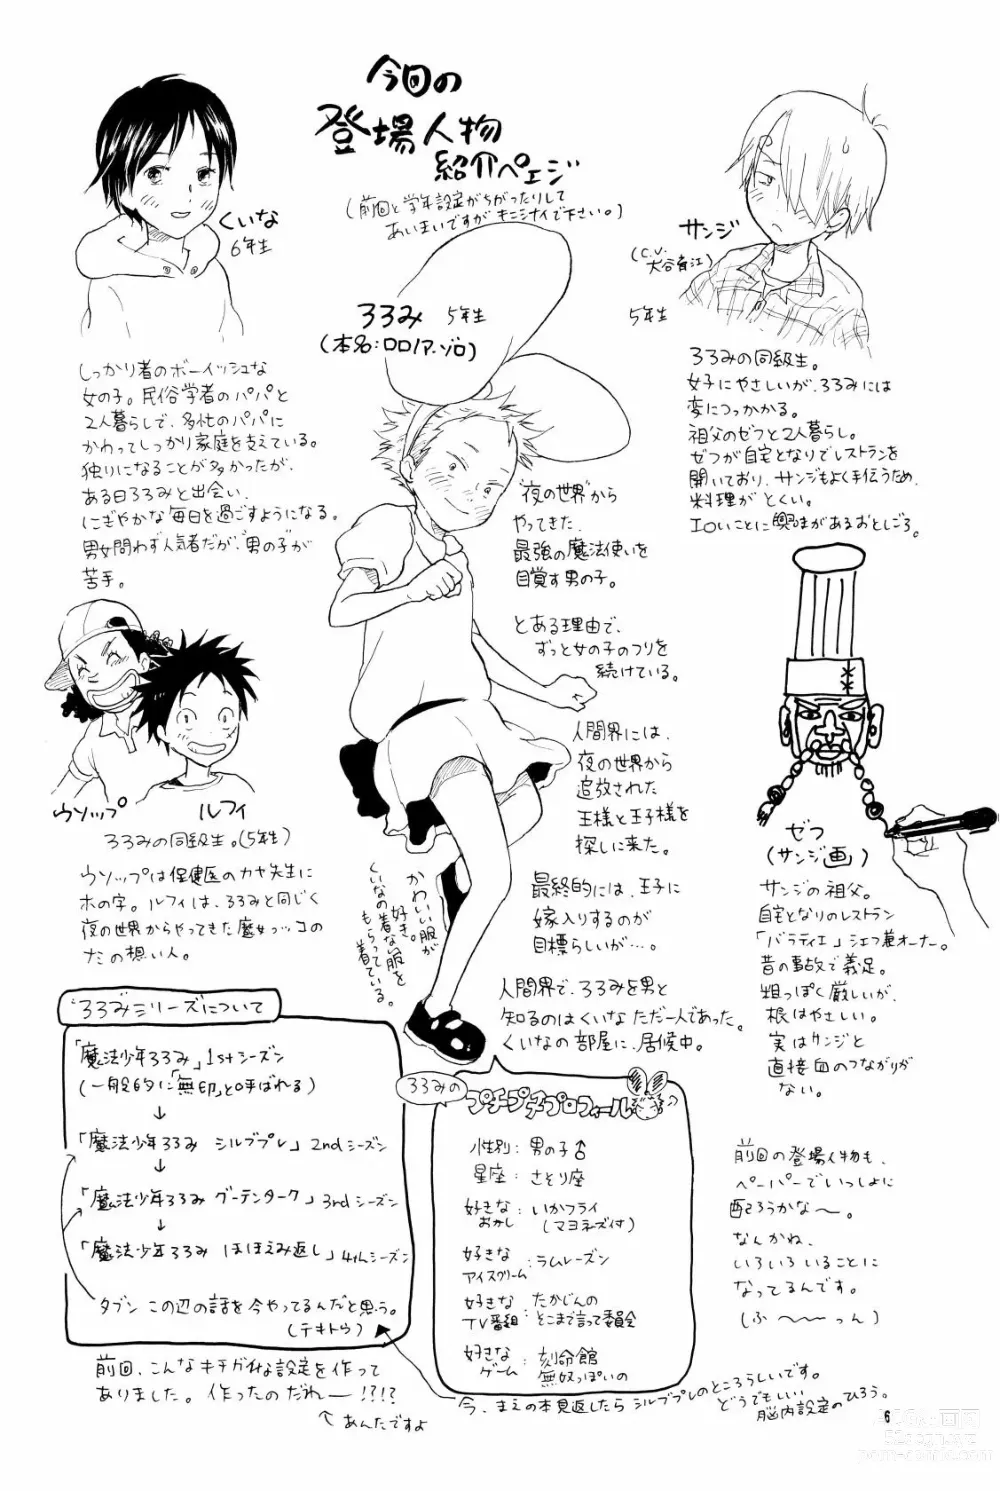 今回の
登場人物
紹介ペェジ
(前回と学年設定がちがったりして
あいまいですが キニシナイで下さい。)
くいな
6年生
しっかり者のボーイッシュな
女の子。民俗学者のパパと
2人暮らしで、多忙のパパに
かわってしっかり家庭を支えている。
独りになることが多かったが、
ある日ろろみと出会い、
にぎやかな毎日を過ごすようになる。
男女問わず人気者だが、"男の子"が
苦手。
サンジ
(C.V.
大谷育江)
5年生
ろろみの同級生。
女子にやさしいが、ろろみには
変につっかかる。
祖父のゼフと2人暮らし。
ゼフが自宅となりでレストランを
開いており、サンジもよく手伝うため、
料理がとくい。
エロいことに興味があるおとしごろ。
ろろみ 5年生
(本名:ロロノア・ゾロ)
"夜の世界"から
やってきた、
最強の魔法使いを
目覚す男の子。
とある理由で、
ずっと女の子のフリを
続けている。
人間界には、
夜の世界から
追放された
王様と王子様を
探しに来た。
最終的には、王子に
嫁入りするのが
目標らしいが…。
人間界で、ろろみを男と
知るのはくいな ただ一人であった。
くいなの部屋に、居候中。
かわいい服が
好き。
くいなの着ない服を
もらって
着ている。
ウソップ
ルフィ
ろろみの同級生。(5年生)
ウソップは保健医のカヤ先生に
ホの字。ルフィは、ろろみと同じく
夜の世界からやってきた魔女っコの
ナミの想い人。
ゼフ
(サンジ画)
サンジの祖父。
自宅となりのレストラン
「バラティエ」シェフ兼オーナー。
昔の事故で義足。
粗っぽく厳しいが、
根はやさしい。
実はサンジと
直接血のつながりが
ない。
ろろみシリーズについて
「魔法少年ろろみ」1stシーズン
(一般的に「無印」と呼ばれる)
↓
「魔法少年ろろみ シルブプレ」2ndシーズン
↓
「魔法少年ろろみ グーテンターク」3rdシーズン
↓
「魔法少年ろろみ ほほえみ返し」4thシーズン
タブン この辺の話を今やってるんだと思う。
(テキトウ)
前回、こんなキチガイな設定を作って
ありました。作ったのだれー!?!?
↖あんたですよ
ろろみの
プチプチプロフィール
性別: 男の子♂
星座: さとり座
好きな
おかし: いかフライ
(マヨネーズ付)
好きな
アイスクリーム: ラムレーズン
好きな
TV番組: たかじんの
そこまで言って委員会
好きな
ゲーム: 刻命館
無双っぽいの
今、まえの本見返したら シルブプレのところらしいです。
どうでもいい
脳内設定のひろう。
前回の登場人物も、
ペーパーでいっしょに
配ろうかな〜。
なんかね、
いろいろいることに
なってるんです。
(ふ〜〜っん)
6